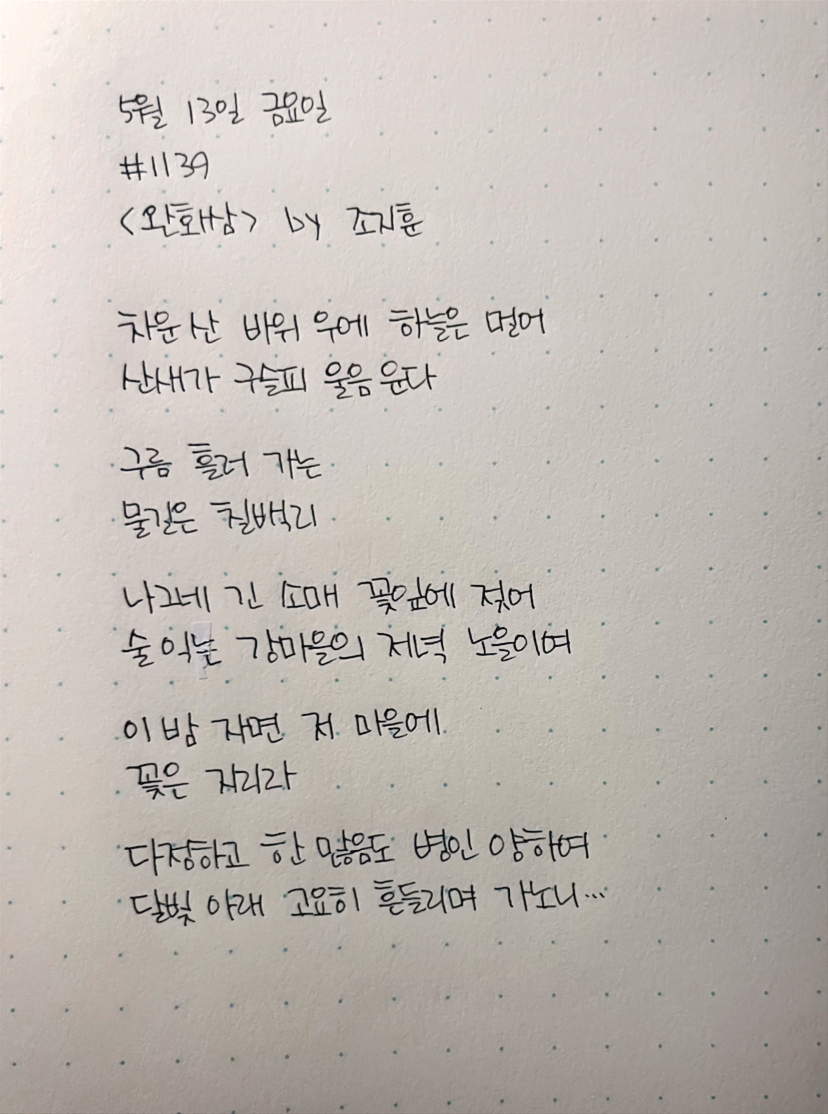 5월 13일 금요일
#1139
<완화삼> by 조지훈
차운 산 바위 우에 하늘은 멀어
산새가 구슬피 울음 운다
구름 흘러 가는
물길은 칠백리
나그네 긴 소매 꽃잎에 젖어
술 익는 강마을의 저녁 노을이여
이 밤 자면 저 마을에
꽃은 지리라
다정하고 한 많음도 병인 양하여
달빛 아래 고요히 흔들리며 가노니...